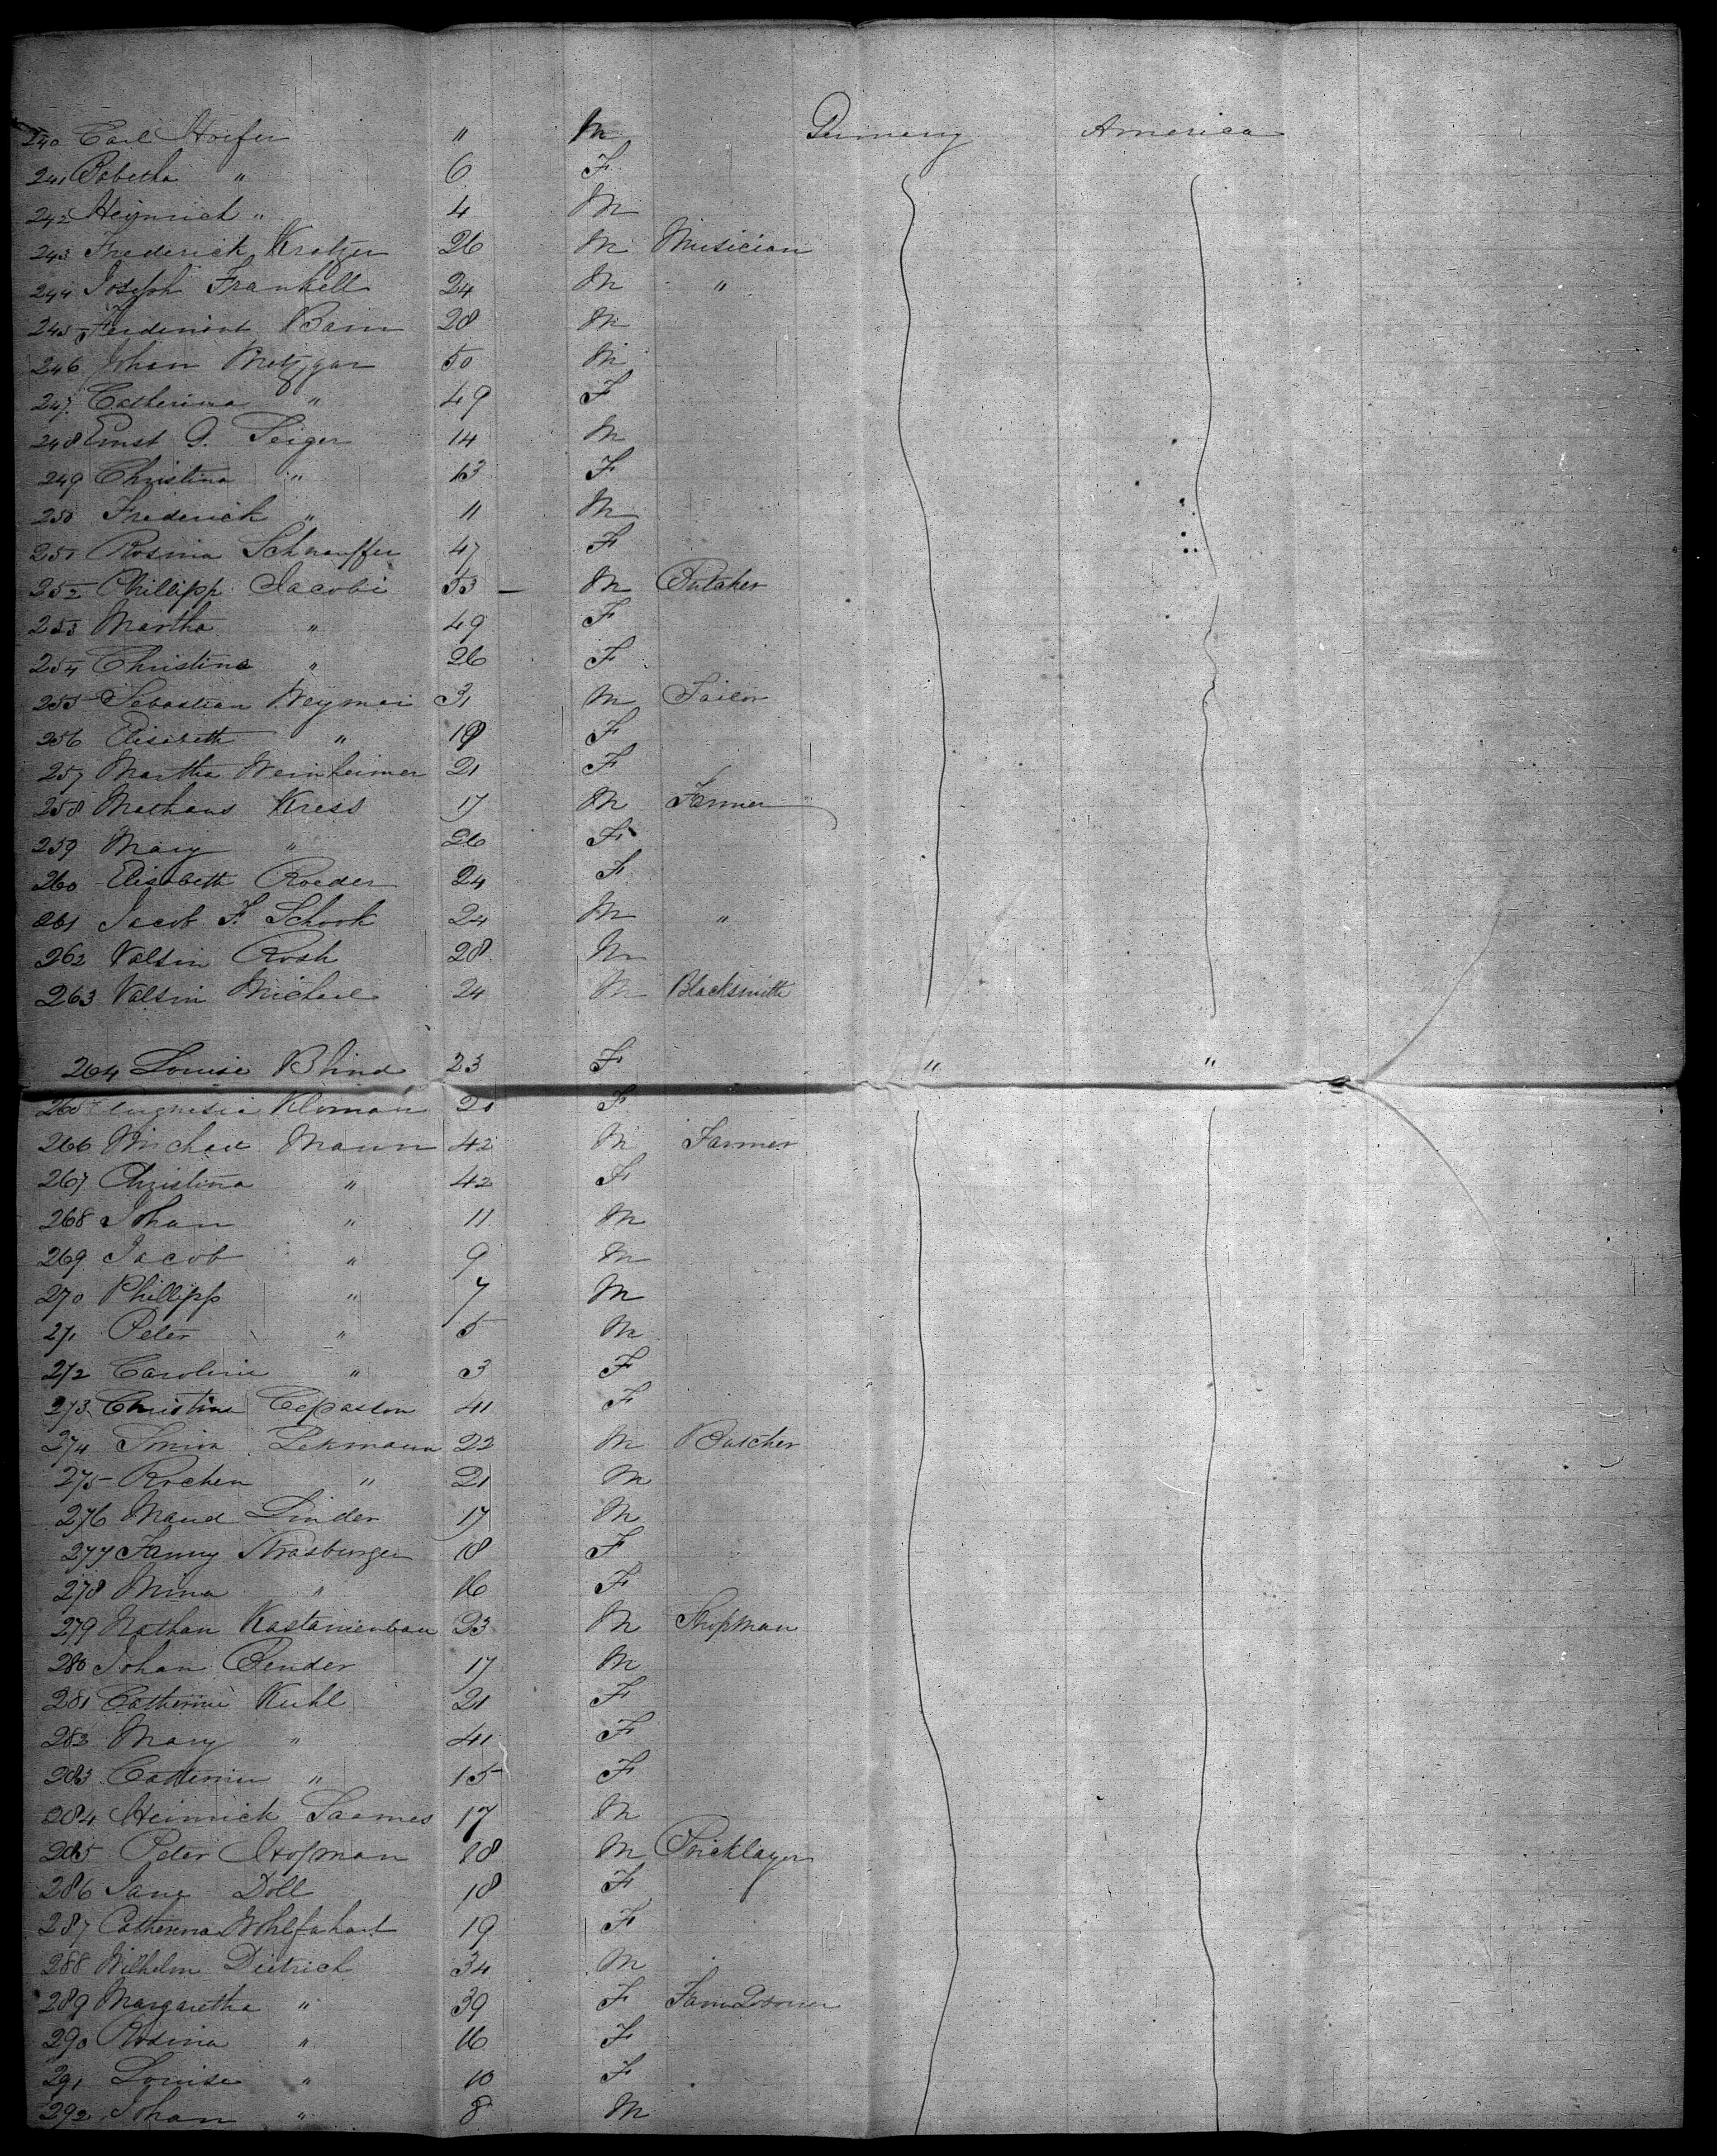 240 Carl Hoefer " M Germany America
241 Babetha " 6 F
242 Heinrich " 4 M
243 Frederick Kratzer 26 M Musician
244 Joseph Frankell 24 M "
245 Ferdinant 28 M
246 Johan Metzgar 50 M
247 Catherina " 49 F
248 Ernst G. Seiger 14 M
249 Christina " 13 F
250 Frederick " 11 M
251 Rosina Schnauffer 47 F
252 Phillipp Jacobi 53 — M Butcher
253 Martha " 49 F
254 Christine " 26 F
255 Sebastian Weymar 31 M Tailor
256 Elisabeth " 19 F
257 Martha Weinheimer 21 F
258 Mathaus Kress 17 M Farmer
259 Mary " 26 F
260 Elisabeth Roeder 24 F
261 Jacob F. Schook 24 M "
262 Valtin Rosh 28 M
263 Valtin Michael 24 M Blacksmith
264 Louise Blind 23 F " "
265 Kloman 21 F
266 Michael Mann 42 M Farmer
267 Christina " 42 F
268 Johan " 11 M
269 Jacob " 9 M
270 Phillipp " 7 M
271 Peter " 5 M
272 Caroline " 3 F
273 Christine 41 F
274 Lehmann 22 M Butcher
275 Rochen " 21 M
276 Linder 17 M
277 Fanny Strasburger 18 F
278 Mina " 16 F
279 Nathan Kastanienbau 23 M Shopman
280 Johan Bender 17 M
281 Catherine Kuhl 21 F
282 Mary " 41 F
283 Catherine " 15 F
284 Heinrick Saames 17 M
285 Peter Hofman 28 M Bricklayer
286 Jane Doll 18 F
287 Catherina Wohlfahart 19 F
288 Wilhelm Dietrich 34 M
289 Margaretha " 39 F
290 Rosina " 16 F
291 Louise " 10 F
292 Johan " 8 M